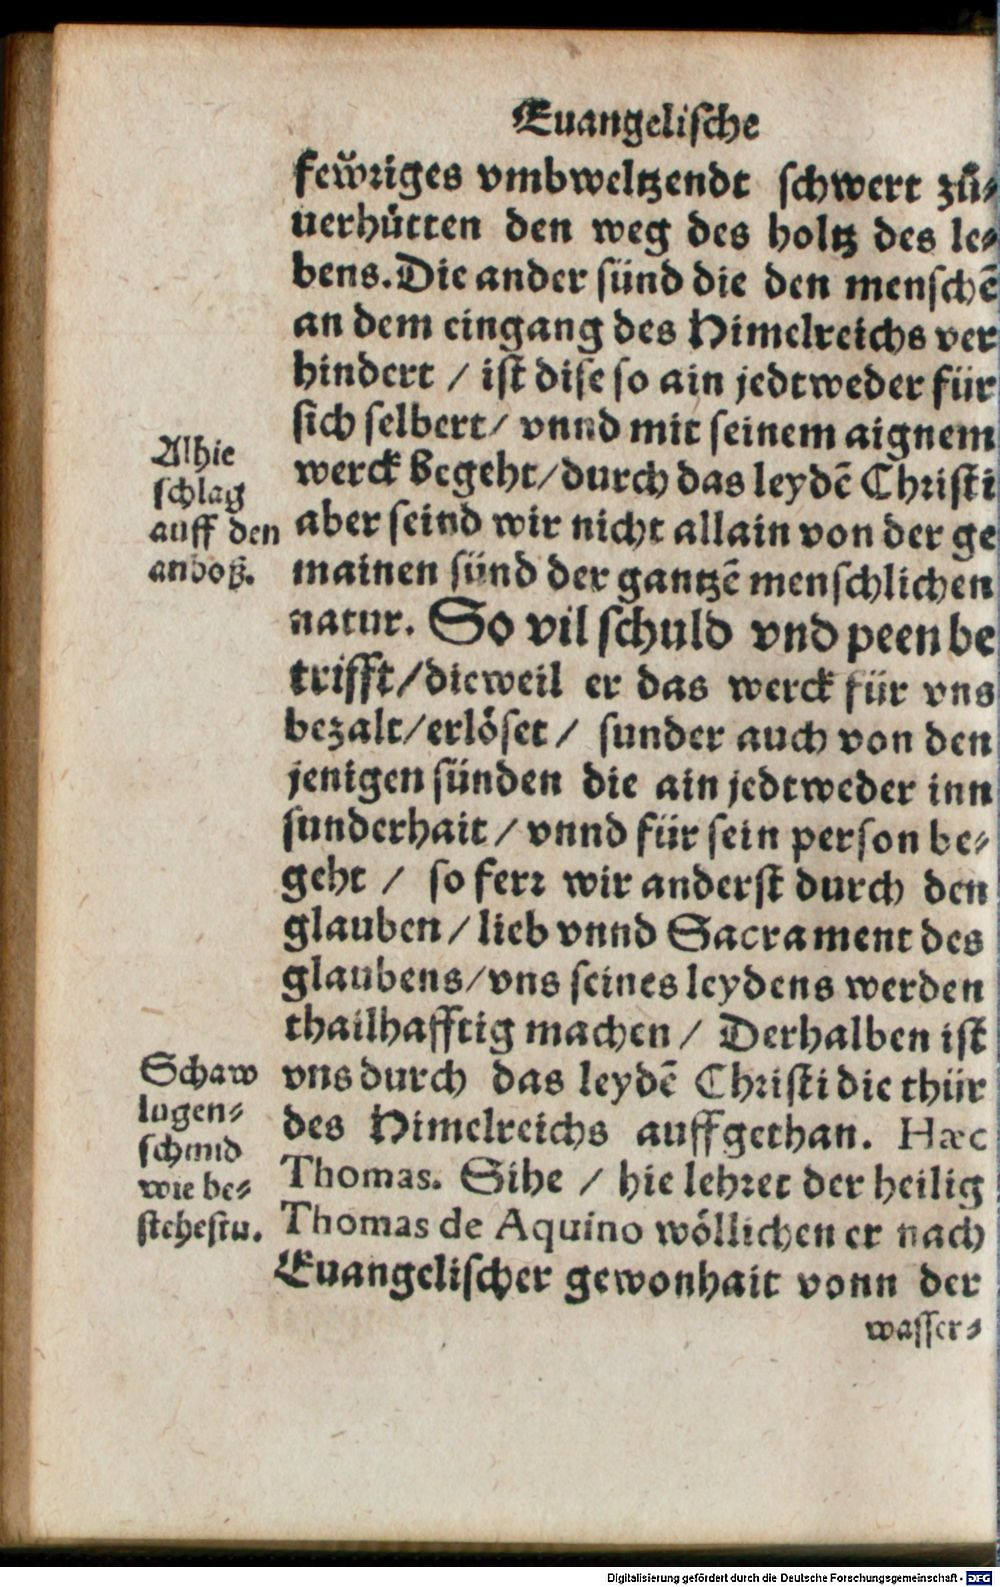 Euangelische
fewͤriges vmbweltzendt schwert zuͦ⸗
uerhuͤtten den weg des holtz des le⸗
bens. Die ander sünd die den menschē
an dem eingang des Himelreichs ver
hindert / ist dise so ain jedtweder für
sich selbert / vnnd mit seinem aignem
werck begeht / durch das leydē Christi
aber seind wir nicht allain von der ge
mainen sünd der gantzē menschlichen
natur. So vil schuld vnd peen be
trifft / dieweil er das werck für vns
bezalt / erloͤset / sunder auch von den
jenigen sünden die ain jedtweder inn
sunderhait / vnnd für sein person be⸗
geht / so ferr wir anderst durch den
glauben / lieb vnnd Sacrament des
glaubens / vns seines leydens werden
thailhafftig machen / Derhalben ist
vns durch das leydē Christi die thür
des Himelreichs auffgethan. Hæc
Thomas. Sihe / hie lehret der heilig
Thomas de Aquino woͤllichen er nach
Euangelischer gewonhait vonn der
wasser⸗
Alhie
schlag
auff den
anboß.
Schaw
lugen⸗
schmid
wie be⸗
stehestu.
Digitalisierung gefördert durch die Deutsche Forschungsgemeinschaft - DFG